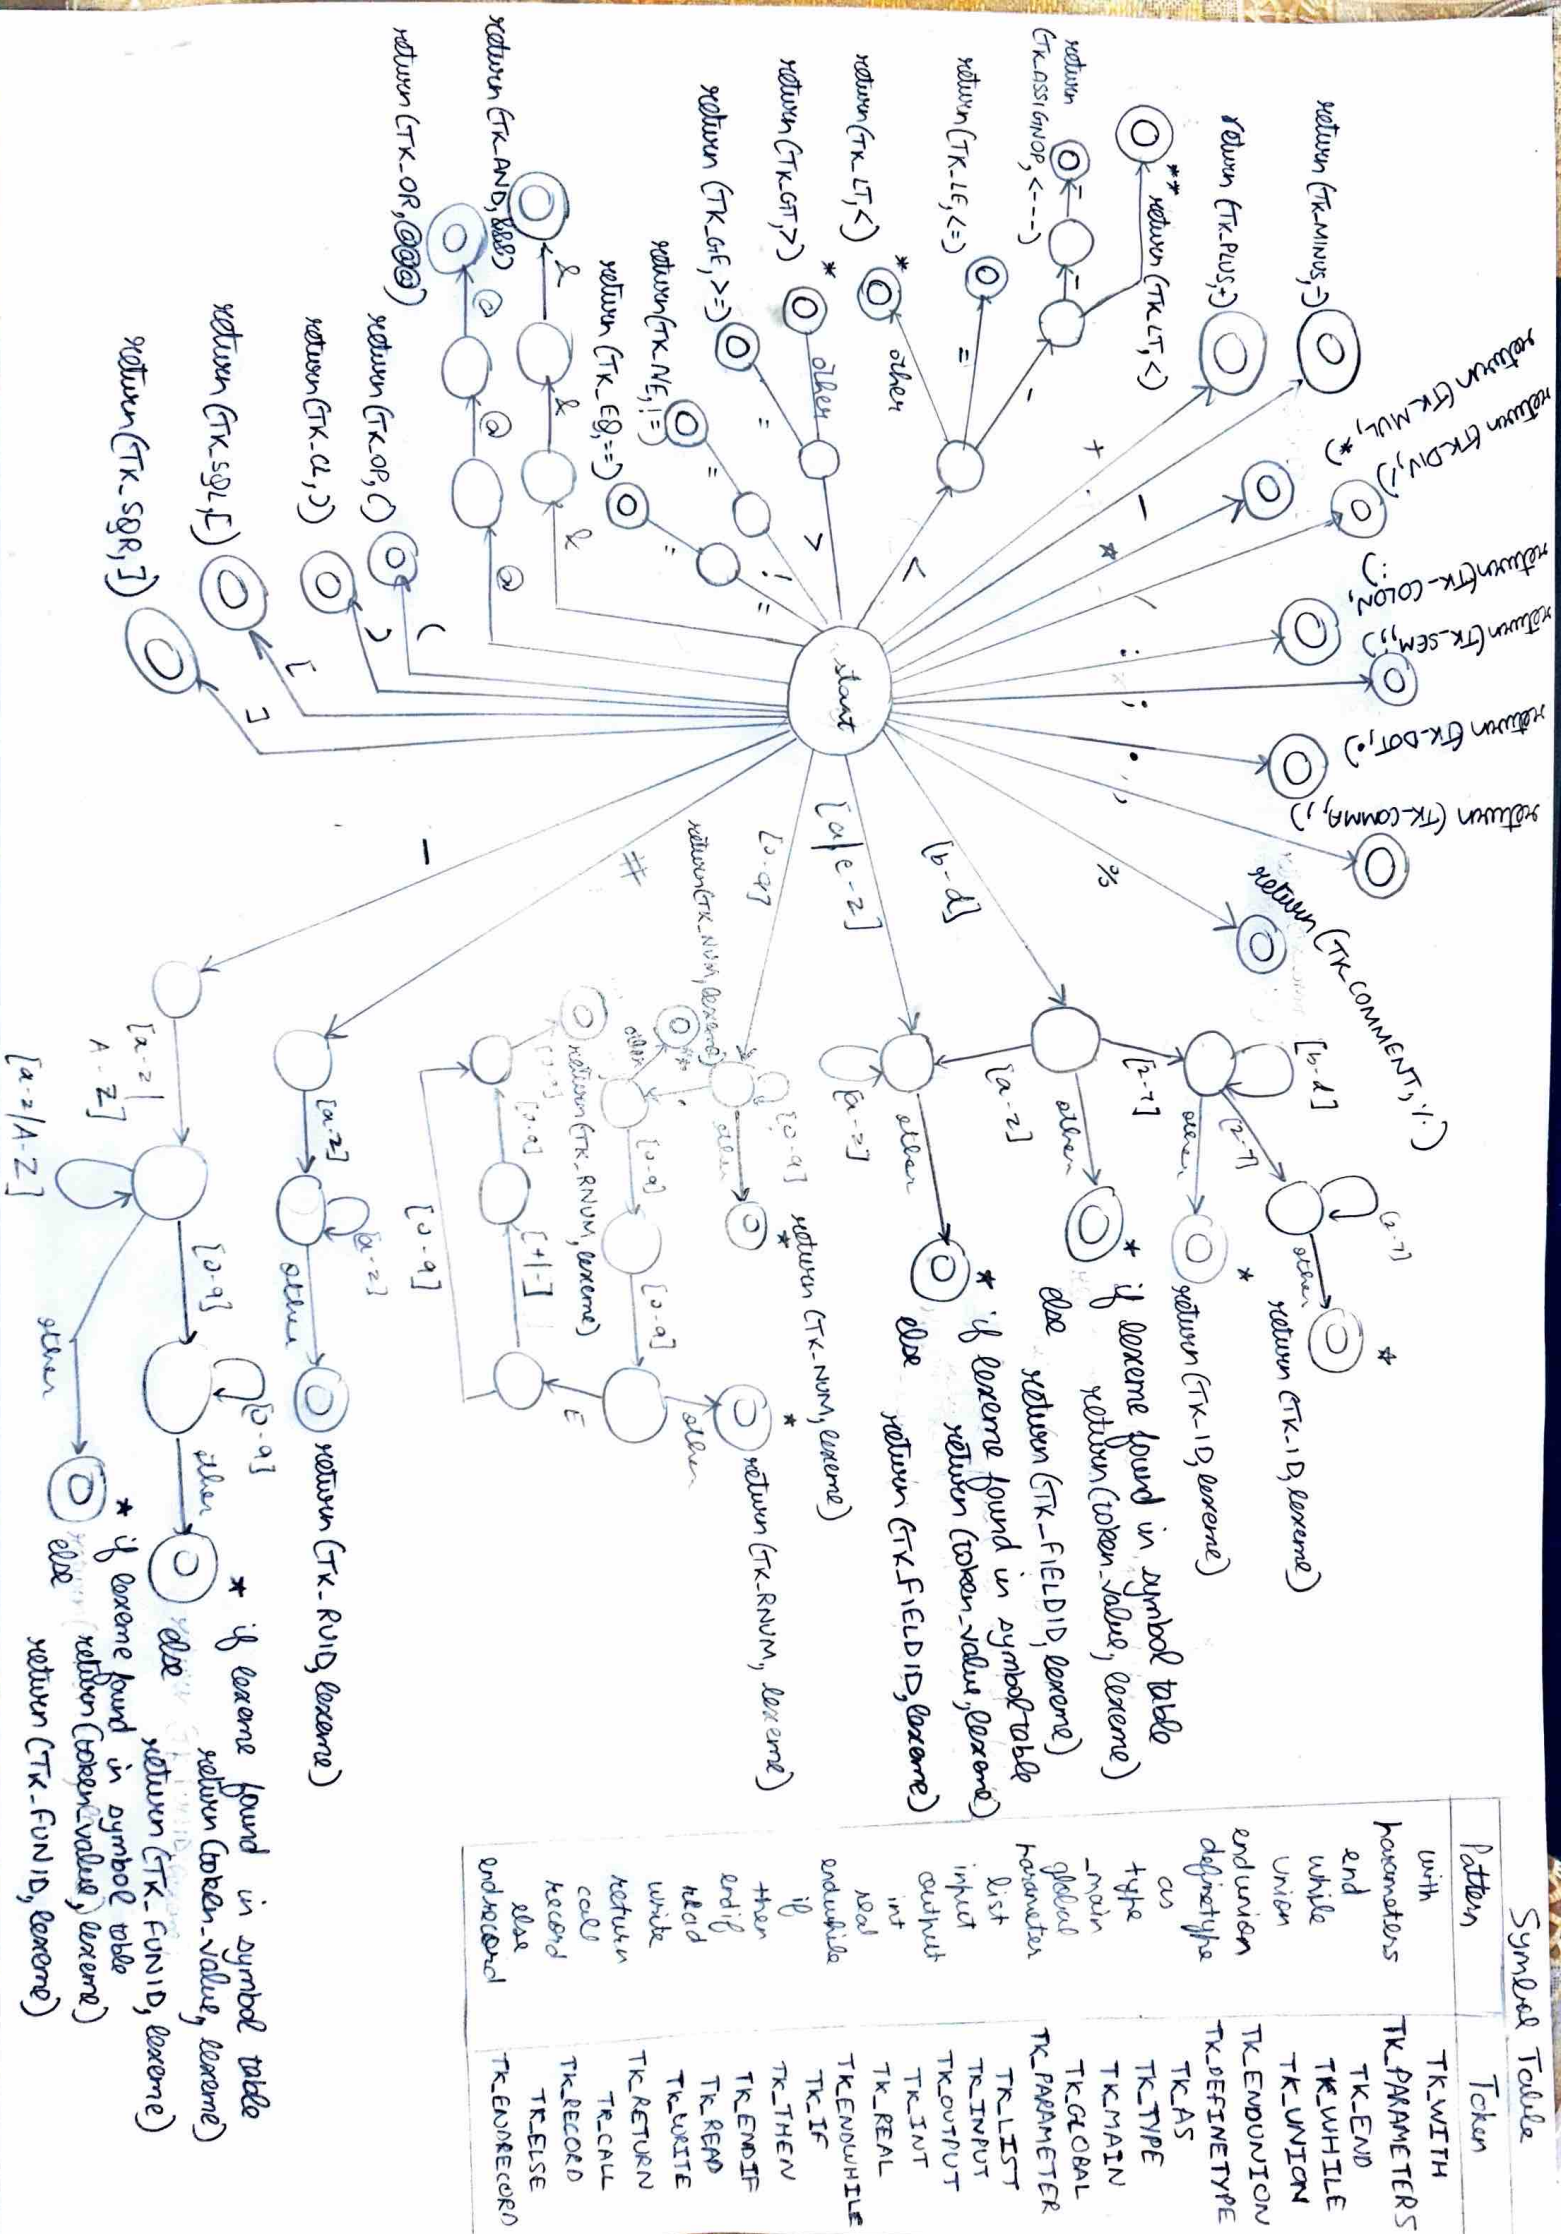 return(TK_MINUS,-)
return(TK_PLUS,+)
** return(TK_LT,<)
return
(TK_ASSIGNOP,<---)
return(TK_LE,<=)
return(TK_LT,<)
*
return(TK_GT,>)
*
return(TK_GE,>=)
return(TK_NE,!=)
return(TK_EQ,==)
return(TK_AND,&&&)
return(TK_OR,@@@)
return(TK_OP,()
return(TK_CL,))
return(TK_SQL,[)
return(TK_SQR,])
return(TK_MUL,*)
return(TK_DIV,/)
return(TK_COLON,
:)
return(TK_SEM,;)
return(TK_DOT,.)
return(TK_COMMA,,)
return(TK_COMMENT,%)
start
+
-
*
/
:
;
.
,
%
<
-
-
-
=
other
>
other
=
!
=
=
=
&
&
&
@
@
@
(
)
[
]
[b-d]
[2-7]
[b-d]
[2-7]
[2-7]
other
*
return(TK_ID,lexeme)
other
*
return(TK_ID,lexeme)
other
* if lexeme found in symbol table
return(token_value, lexeme)
else return(TK_FIELDID, lexeme)
[a-z]
[a|e-z]
[a-z]
other
* if lexeme found in symbol table
return(token_value, lexeme)
else return(TK_FIELDID, lexeme)
[0-9]
[0-9]
other
*
return(TK_NUM, lexeme)
.
other
**
return(TK_NUM, lexeme)
[0-9]
[0-9]
other
*
return(TK_RNUM, lexeme)
E
[+|-]
[0-9]
[0-9]
[0-9]
return(TK_RNUM, lexeme)
#
[a-z]
[a-z]
other
return(TK_RUID, lexeme)
_
[a-z|
A-Z]
[a-z/A-Z]
[0-9]
[0-9]
other
* if lexeme found in symbol table
return(token_value, lexeme)
else return(TK_FUNID, lexeme)
other
* if lexeme found in symbol table
return(token_value, lexeme)
else return(TK_FUNID, lexeme)
Symbol Table
Pattern Token
with TK_WITH
parameters TK_PARAMETERS
end TK_END
while TK_WHILE
union TK_UNION
endunion TK_ENDUNION
definetype TK_DEFINETYPE
as TK_AS
type TK_TYPE
_main TK_MAIN
global TK_GLOBAL
parameter TK_PARAMETER
list TK_LIST
input TK_INPUT
output TK_OUTPUT
int TK_INT
real TK_REAL
endwhile TK_ENDWHILE
if TK_IF
then TK_THEN
endif TK_ENDIF
read TK_READ
write TK_WRITE
return TK_RETURN
call TK_CALL
record TK_RECORD
else TK_ELSE
endrecord TK_ENDRECORD